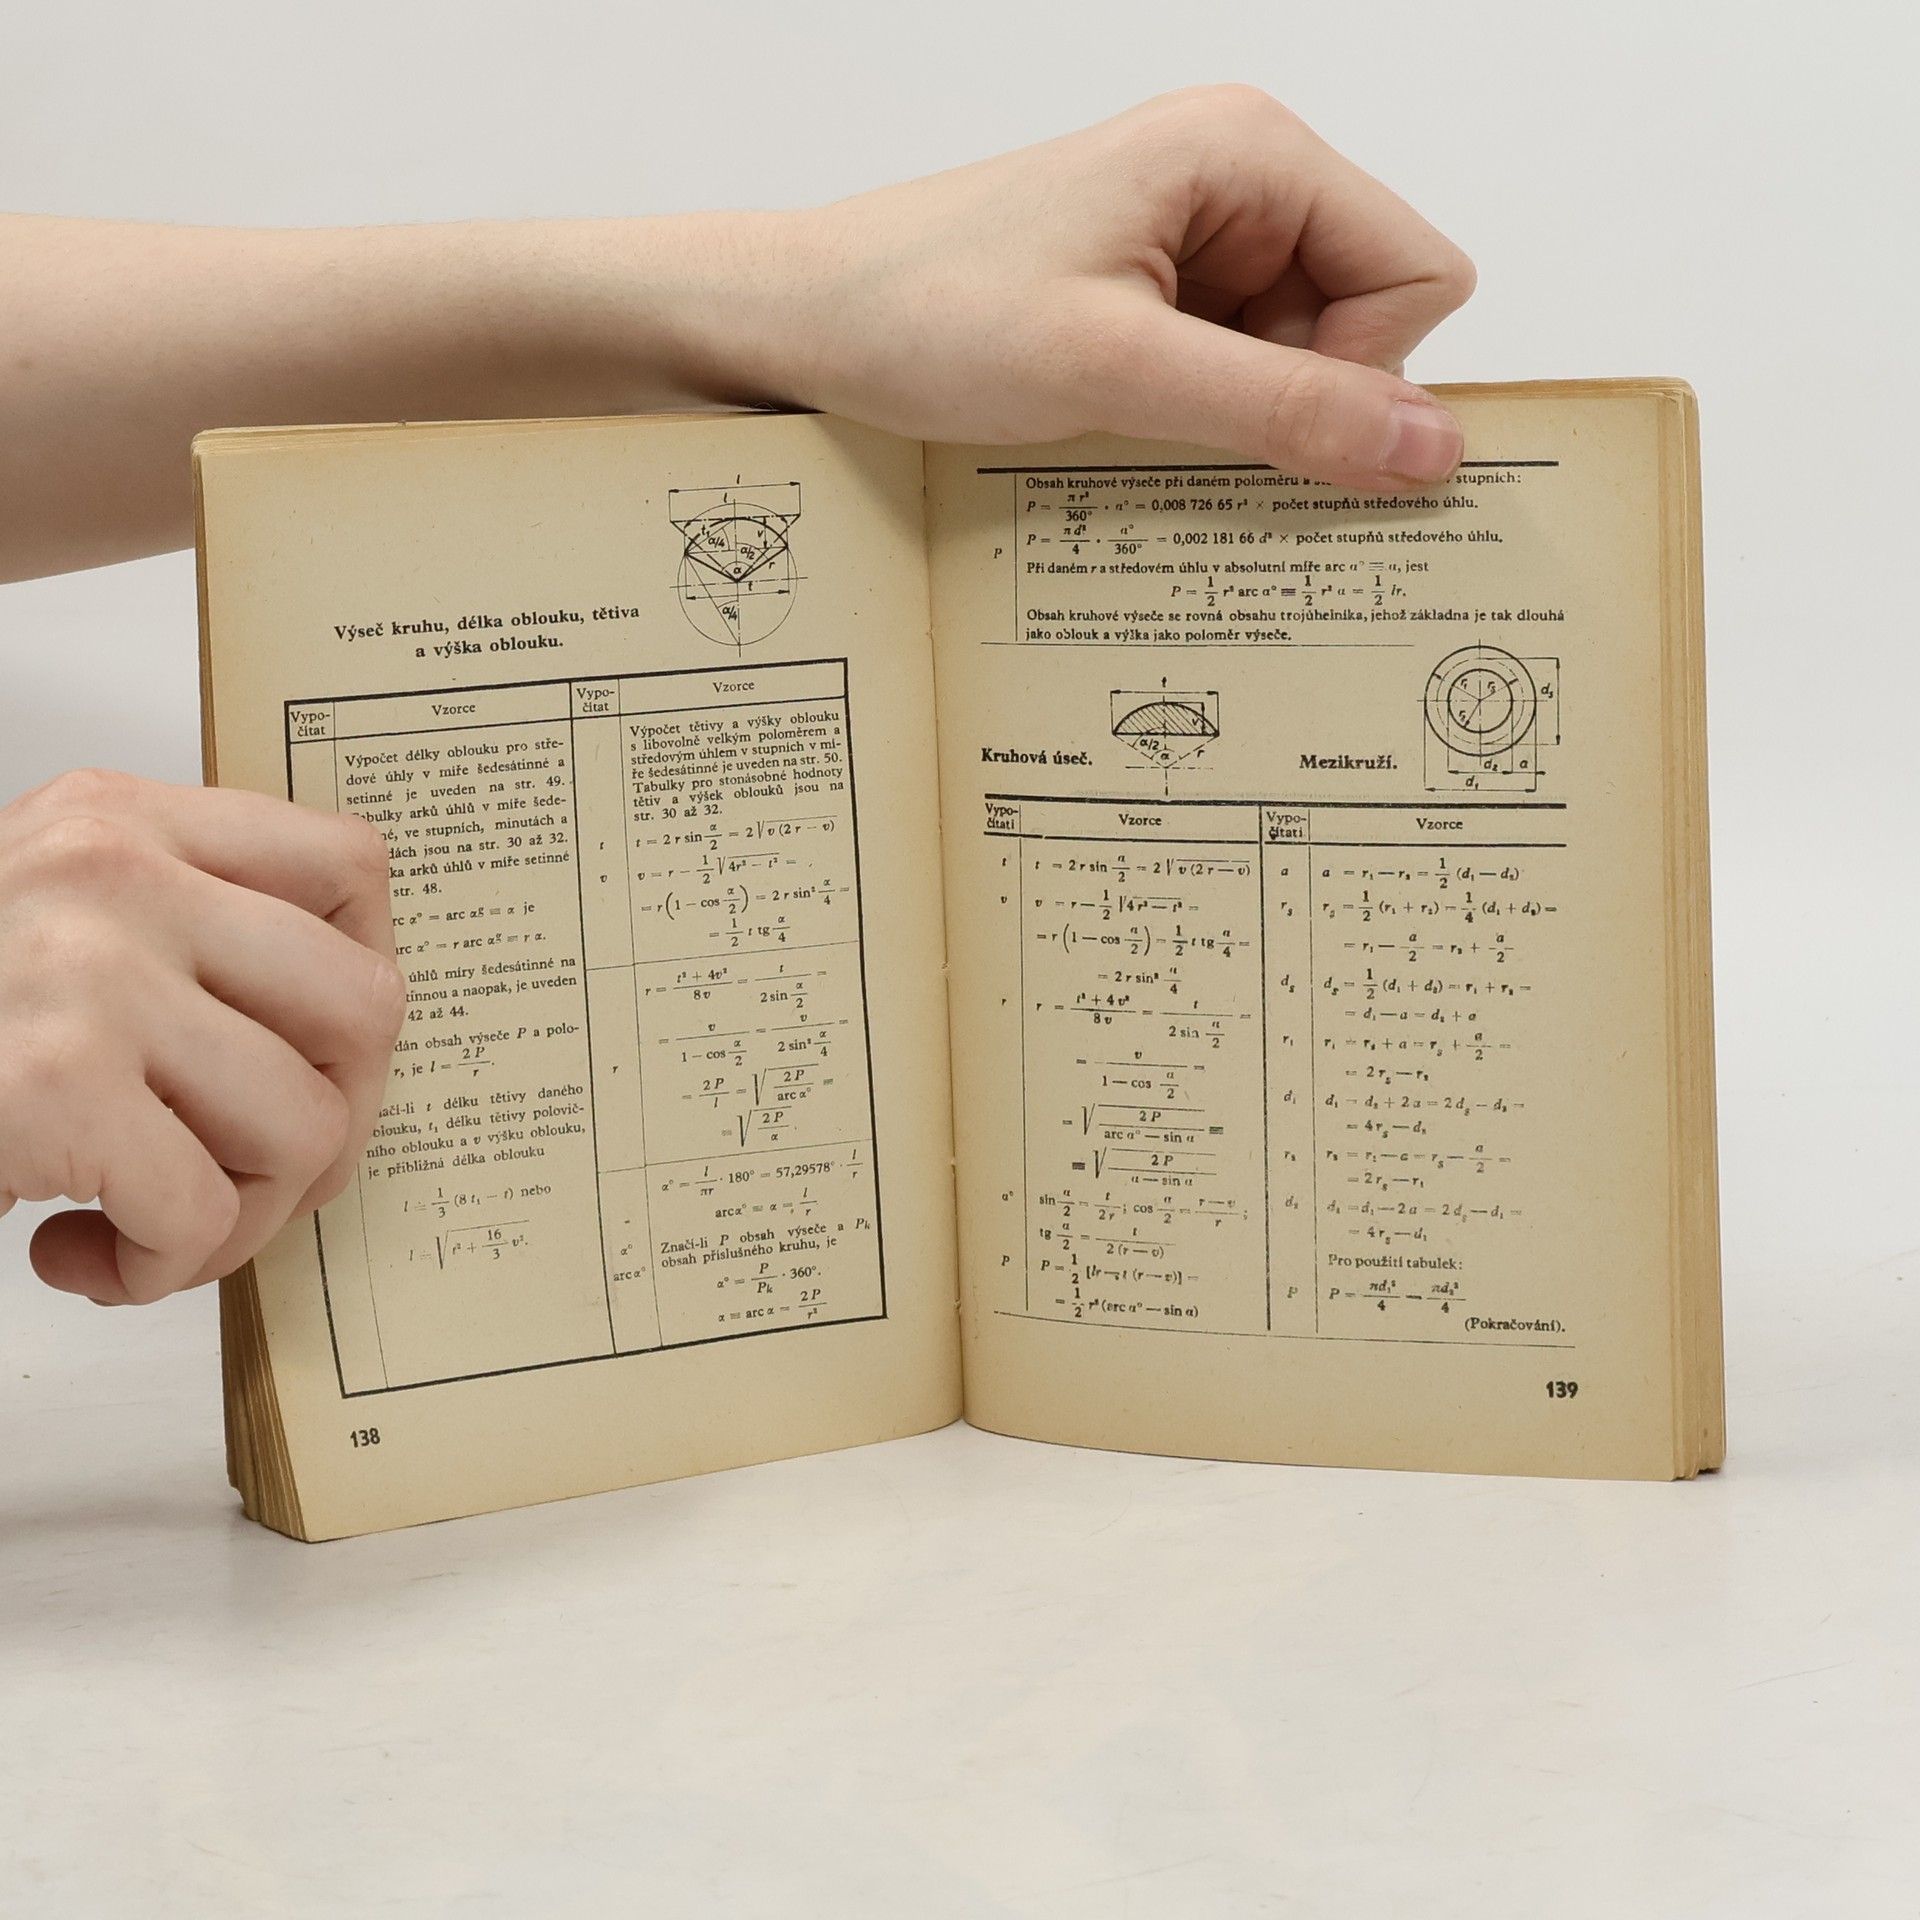 Výseč kruhu, délka oblouku, tětiva
a výška oblouku.
Vypo-
čítat
Vzorce
Výpočet délky oblouku pro stře-
dové úhly v míře šedesátinné a
setinné je uveden na str. 49.
úhlů v míře šede-
ve stupních, minutách a
jsou na str. 30 až 32.
arků úhlů v míře setinné
str. 48.
α° = arc αg ≡ α je
α° = r arc αg ≡ r α.
úhlů míry šedesátinné na
a naopak, je uveden
42 až 44.
obsah výseče P a polo-
r, je l = 2 P / r.
t délku tětivy daného
t₁ délku tětivy polovič-
ního oblouku a v výšku oblouku,
je přibližná délka oblouku
l ≐ 1/3 (8 t₁ − t) nebo
l ≐ √(t² + 16/3 v²).
Vypo-
čítat
Vzorce
Výpočet tětivy a výšky oblouku
s libovolně velkým poloměrem a
středovým úhlem v stupních v mí-
ře šedesátinné je uveden na str. 50.
Tabulky pro stonásobné hodnoty
tětiv a výšek oblouků jsou na
str. 30 až 32.
t t = 2 r sin α/2 = 2 √(v (2 r − v))
v v = r − 1/2 √(4r² − t²) =
= r (1 − cos α/2) = 2 r sin² α/4 =
= 1/2 t tg α/4
r = (t² + 4v²)/(8 v) = t/(2 sin α/2) =
= v/(1 − cos α/2) = v/(2 sin² α/4) =
r
= 2 P/l = √(2 P/arc α°) ≡
≡ √(2 P/α).
α° = l/(πr) · 180° = 57,29578° · l/r
arcα° ≡ α = l/r
α°
arc α°
Značí-li P obsah výseče a Pk
obsah příslušného kruhu, je
α° = P/Pk · 360°.
α ≡ arc α = 2 P/r²
138
l
l
t₁
α/4
v
α/2
α
r
t
α/4
Obsah kruhové výseče při daném poloměru a stupních:
P = π r²/360° · α° = 0,008 726 65 r² × počet stupňů středového úhlu.
P
P = π d²/4 · α°/360° = 0,002 181 66 d² × počet stupňů středového úhlu.
Při daném r a středovém úhlu v absolutní míře arc α° ≡ α, jest
P = 1/2 r² arc α° ≡ 1/2 r² α = 1/2 lr.
Obsah kruhové výseče se rovná obsahu trojúhelníka, jehož základna je tak dlouhá
jako oblouk a výška jako poloměr výseče.
Kruhová úseč.
t
v
α/2
α
r
Mezikruží.
r₁
d₂
a
d₁
Vypo-
čítati
Vzorce
t t = 2 r sin α/2 = 2 √(v (2 r − v))
v v = r − 1/2 √(4 r² − t²) =
= r (1 − cos α/2) = 1/2 t tg α/4 =
= 2 r sin² α/4
r r = (t² + 4 v²)/(8 v) = t/(2 sin α/2) =
= v/(1 − cos α/2) =
= √(2 P/(arc α° − sin α)) ≡
≡ √(2 P/(α − sin α))
α° sin α/2 = t/(2 r); cos α/2 = (r − v)/r;
tg α/2 = t/(2 (r − v))
P P = 1/2 [lr − t (r − v)] =
= 1/2 r² (arc α° − sin α)
Vypo-
čítati
Vzorce
a a = r₁ − r₂ = 1/2 (d₁ − d₂)
rs rs = 1/2 (r₁ + r₂) = 1/4 (d₁ + d₂) =
= r₁ − a/2 = r₂ + a/2
ds ds = 1/2 (d₁ + d₂) = r₁ + r₂ =
= d₁ − a = d₂ + a
r₁ r₁ = r₂ + a = rs + a/2 =
= 2 rs − r₂
d₁ d₁ = d₂ + 2 a = 2 ds − d₂ =
= 4 rs − d₂
r₂ r₂ = r₁ − a = rs − a/2 =
= 2 rs − r₁
d₂ d₂ = d₁ − 2 a = 2 ds − d₁ =
= 4 rs − d₁
Pro použití tabulek:
P P = πd₁²/4 − πd₂²/4
(Pokračování).
139